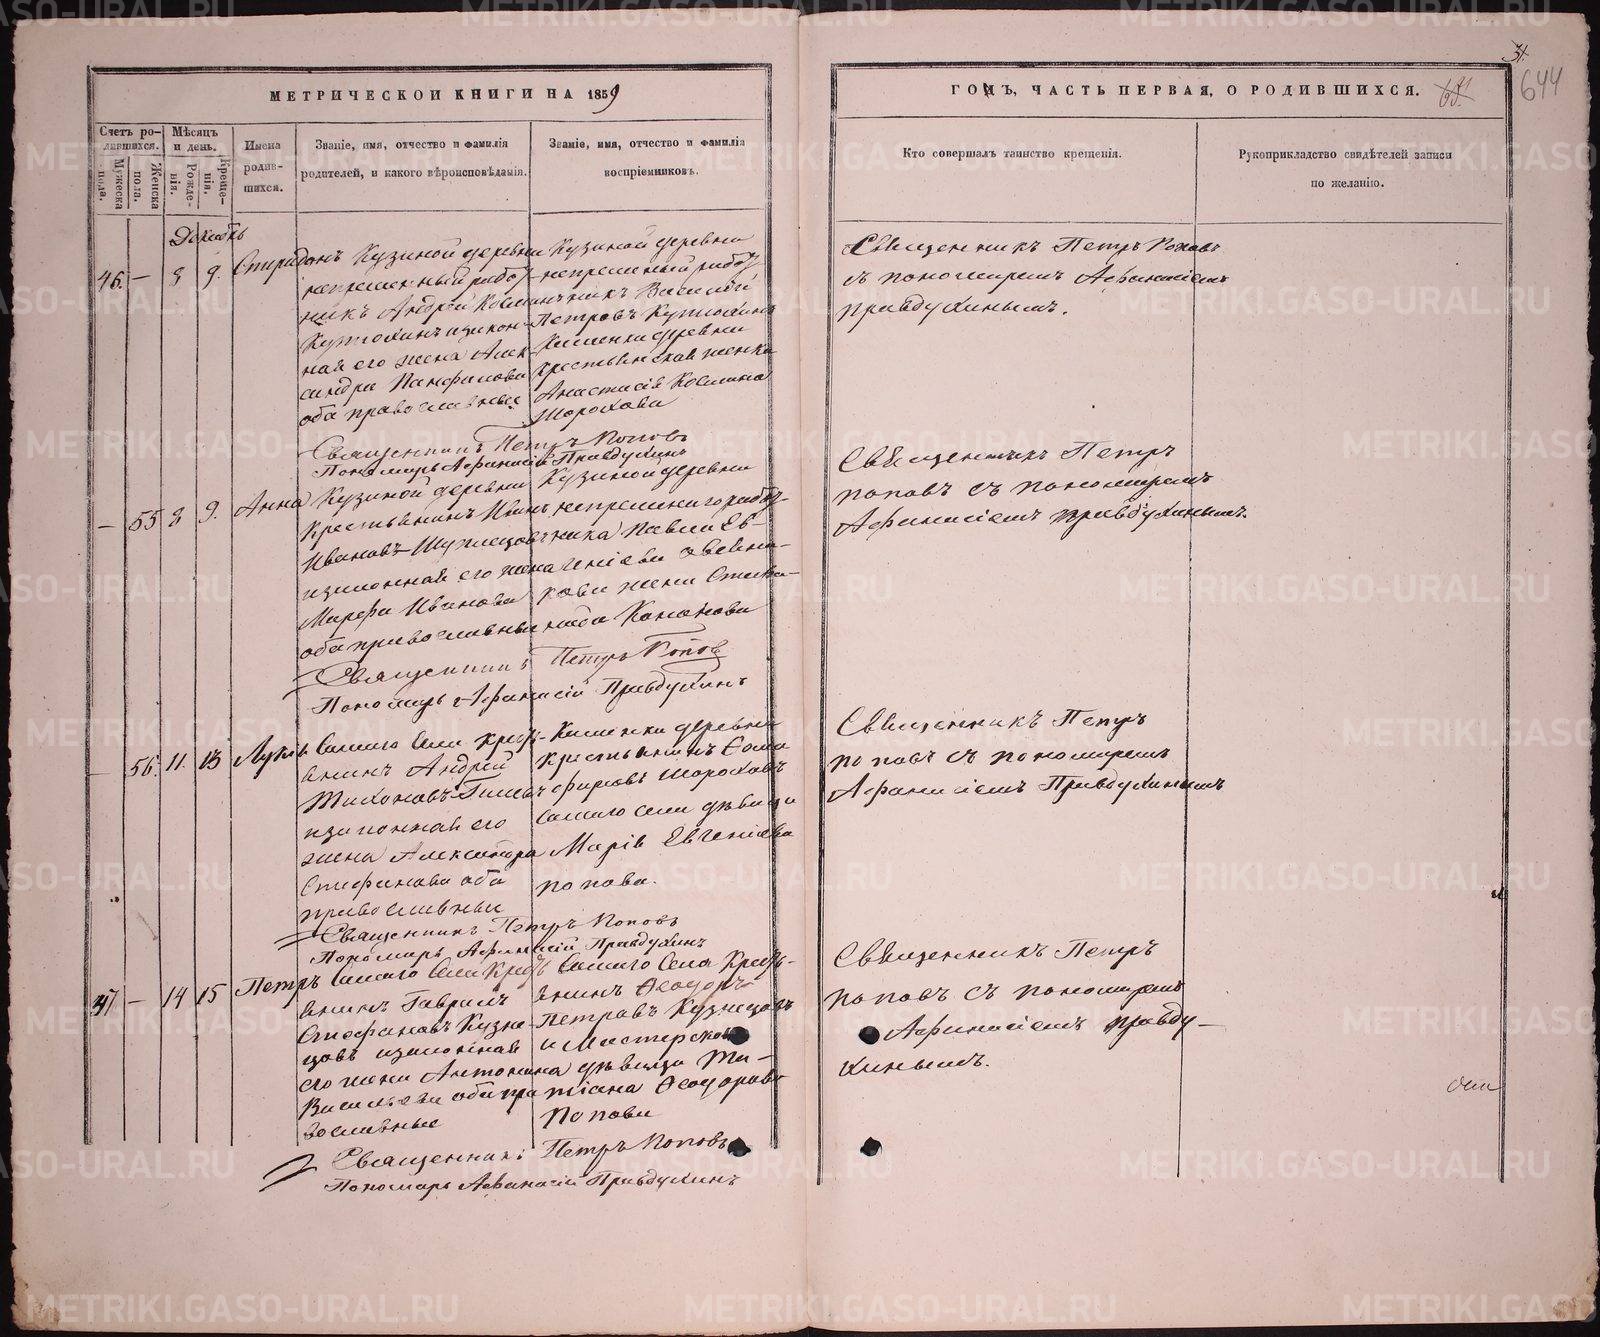 МЕТРИЧЕСКОЙ КНИГИ НА 1859
ГОДЪ, ЧАСТЬ ПЕРВАЯ, О РОДИВШИХСЯ.
31.
644
Счетъ ро-
дившихся.
Мужеска
пола.
Женска
пола.
Мѣсяцъ
и день.
Рожде-
нія.
Креще-
нія.
Имена
родив-
шихся.
Званіе, имя, отчество и фамилія
родителей, и какого вѣроисповѣданія.
Званіе, имя, отчество и фамилія
воспріемниковъ.
Кто совершалъ таинство крещенія.
Рукоприкладство свидѣтелей записи
по желанію.
Декабрь
46. — 8 9. Спиридонъ
Кузиной деревни
непременный работ-
никъ Андрей Козминъ
Кутюхинъ изакон-
ная его жена Алек-
сандра Панфилова
оба православные
Кузиной деревни
непременный работ-
никъ Василій
Петровъ Кутюхинъ
деревни
крестьянская женка
Анастасія Козмина
Шорохова
Священникъ Петръ Поповъ
съ пономаремъ Афанасіемъ
Правдухинымъ.
Священникъ Петръ Поповъ
Пономарь Афанасій Правдухинъ
— 55 8 9. Анна
Кузиной деревни
Крестьянинъ Иванъ
Ивановъ
изаконная его жена
Марфа Иванова
оба православные
Кузиной деревни
непременнаго работ-
ника Павла Ев-
геніева Овсянни-
кова жена Степа-
нида Кононова
Священникъ Петръ
Поповъ съ пономаремъ
Афанасіемъ Правдухинымъ.
Священникъ Петръ Поповъ
Пономарь Афанасій Правдухинъ
— 56. 11. 13
Самаго села крест-
янинъ Андрей
Тихоновъ
изаконная его
жена Александра
Стефанова оба
православные
деревни
крестьянинъ Фома
Шороховъ
Самаго села дѣвица
Марія Евгеніева
Попова.
Священникъ Петръ
Поповъ съ пономаремъ
Афанасіемъ Правдухинымъ
Священникъ Петръ Поповъ
Пономарь Афанасій Правдухинъ
47 — 14 15 Петръ
Самаго села Крест-
янинъ Гавріилъ
Стефановъ Кузне-
цовъ изаконная
его жена Антонина
Васильева оба пра-
вославные
Самаго села Крест-
янинъ Ѳеодоръ
Петровъ Кузнецовъ
и Мастерская
дѣвица Та-
тіана Ѳеодорова
Попова
Священникъ Петръ
Поповъ съ пономаремъ
Афанасіемъ Правду-
хинымъ.
Священникъ Петръ Поповъ
Пономарь Афанасій Правдухинъ
METRIKI.GASO-URAL.RU